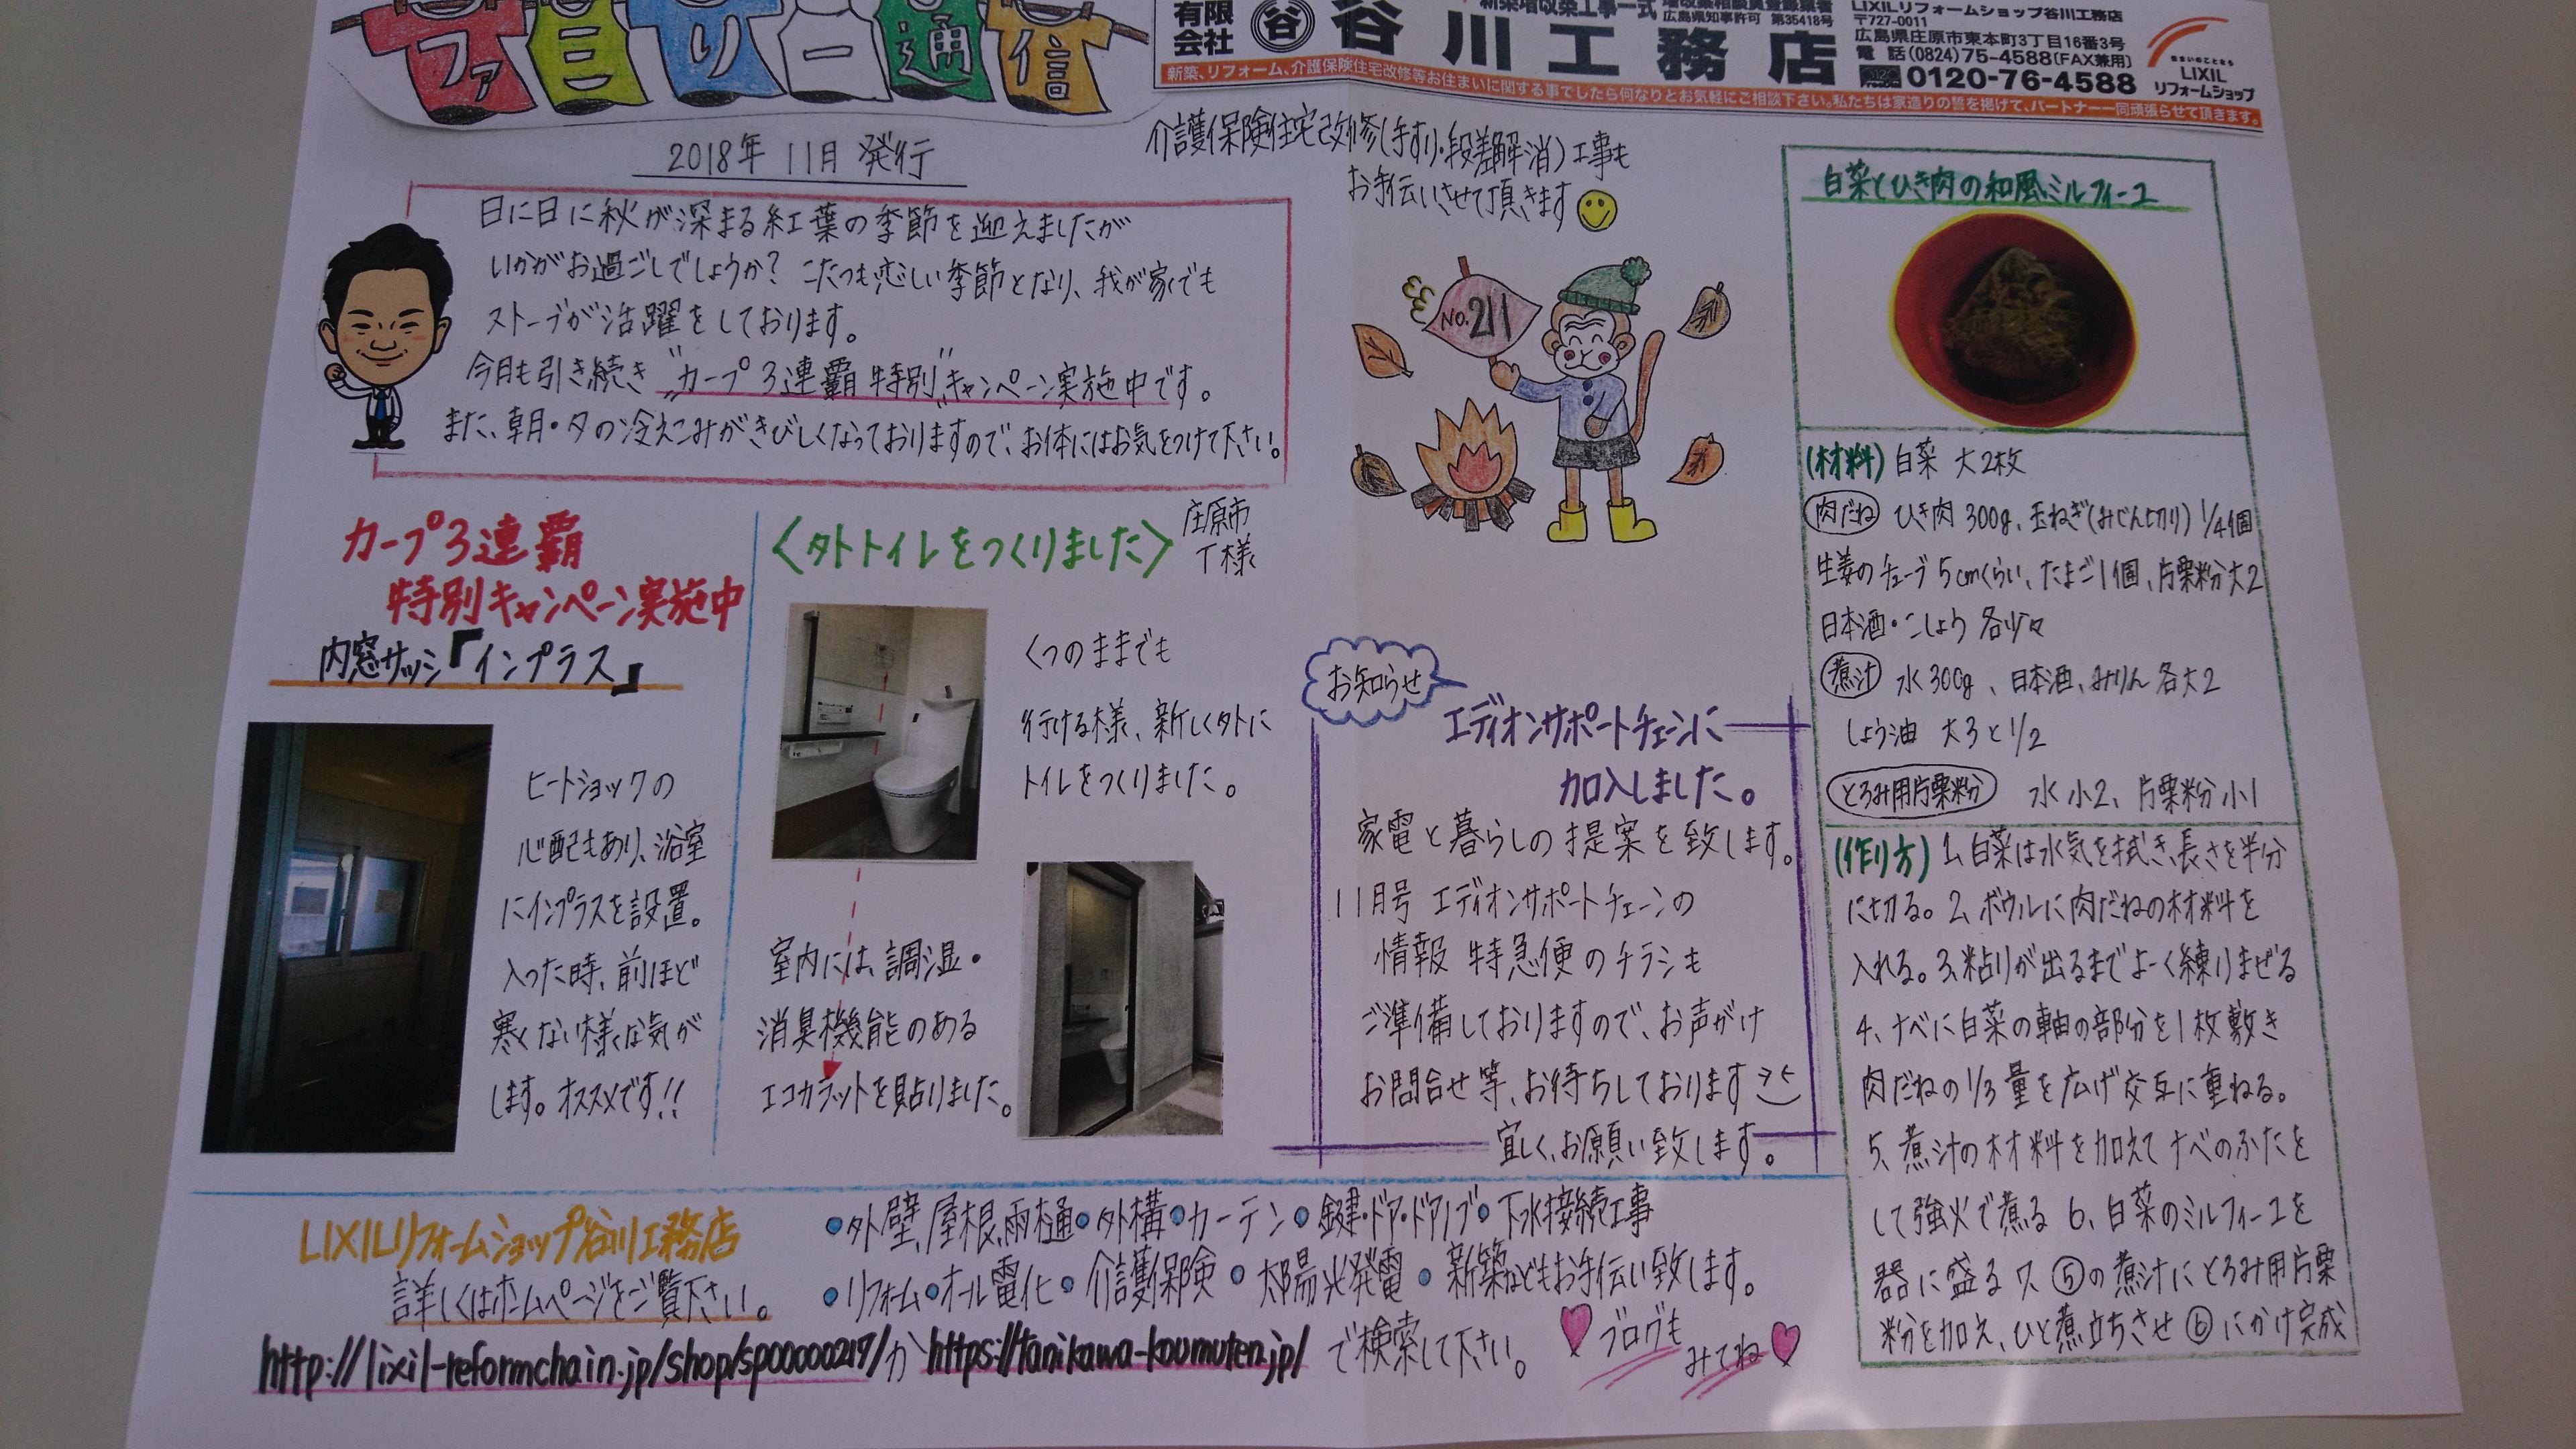 ファミリー通信
有限会社 谷 谷川工務店
新築増改築工事一式
広島県知事許可 第35418号
LIXILリフォームショップ谷川工務店
〒727-0011
広島県庄原市東本町3丁目16番3号
電話(0824)75-4588(FAX兼用)
0120-76-4588
LIXIL
リフォームショップ
新築、リフォーム、介護保険住宅改修等お住まいに関する事でしたら何なりとお気軽にご相談下さい。私たちは家造りの誓を掲げて、パートナー一同頑張らせて頂きます。
2018年 11月 発行
日に日に秋が深まる紅葉の季節を迎えましたが
いかがお過ごしでしょうか? こたつも恋しい季節となり、我が家でも
ストーブが活躍をしております。
今月も引き続き "カープ3連覇特別"キャンペーン実施中です。
また、朝・夕の冷えこみがきびしくなっておりますので、お体にはお気をつけて下さい。
介護保険住宅改修(手すり・段差解消)工事も
お手伝いさせて頂きます
No.211
カープ3連覇
特別キャンペーン実施中
内窓サッシ『インプラス』
ヒートショックの
心配もあり、浴室
にインプラスを設置。
入った時、前ほど
寒くない様な気が
します。オススメです!!
〈外トイレをつくりました〉
庄原市
T様
くつのままでも
行ける様、新しく外に
トイレをつくりました。
室内には、調湿・
消臭機能のある
エコカラットを貼りました。
お知らせ
エディオンサポートチェーンに
加入しました。
家電と暮らしの提案を致します。
11月号 エディオンサポートチェーンの
情報 特急便のチラシも
ご準備しておりますので、お声がけ
お問合せ等、お待ちしております
宜しく、お願い致します。
白菜とひき肉の和風ミルフィーユ
(材料) 白菜 大2枚
肉だね ひき肉 300g、玉ねぎ(みじん切り) 1/4個
生姜のチューブ 5cmくらい、たまご1個、片栗粉大2
日本酒・こしょう 各少々
煮汁 水300g、日本酒、みりん 各大2
しょう油 大3と1/2
とろみ用片栗粉 水 小2、片栗粉 小1
(作り方) 1、白菜は水気を拭き、長さを半分
に切る。2、ボウルに肉だねの材料を
入れる。3、粘りが出るまでよーく練りまぜる
4、ナベに白菜の軸の部分を1枚敷き
肉だねの1/3量を広げ交互に重ねる。
5、煮汁の材料を加えてナベのふたを
して強火で煮る 6、白菜のミルフィーユを
器に盛る 7、⑤の煮汁にとろみ用片栗
粉を加え、ひと煮立ちさせ⑥にかけ完成
LIXILリフォームショップ谷川工務店
詳しくはホームページをご覧下さい。
●外壁、屋根、雨樋●外構●カーテン●鍵・ドア・ドアノブ●下水接続工事
●リフォーム●オール電化●介護保険●太陽光発電●新築などもお手伝い致します。
http://lixil-reformchain.jp/shop/sp00000217/か https://tanikawa-koumuten.jp/ で検索して下さい。
ブログも
みてね